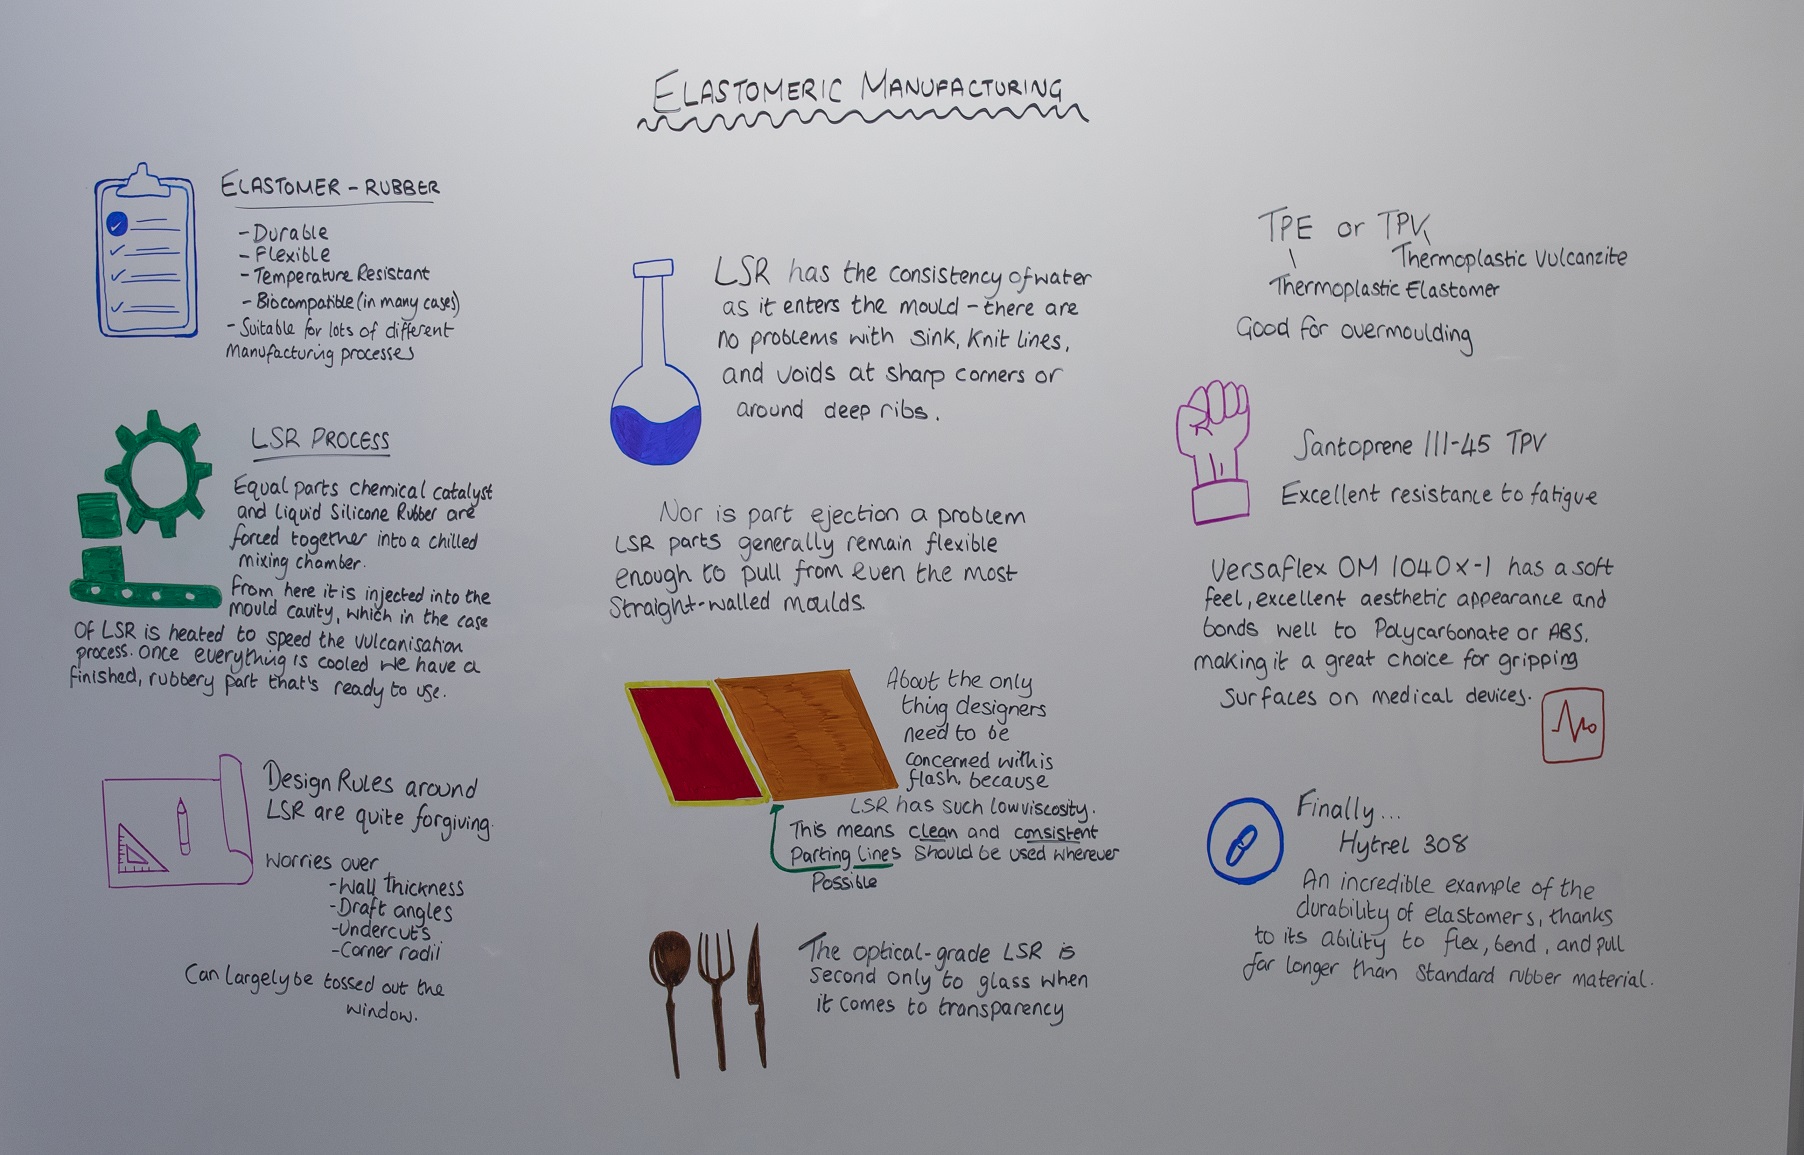 ELASTOMERIC MANUFACTURING
ELASTOMER - RUBBER
- Durable
- Flexible
- Temperature Resistant
- Biocompatible (in many cases)
- Suitable for lots of different
Manufacturing processes
LSR PROCESS
Equal parts chemical catalyst
and liquid Silicone Rubber are
forced together into a chilled
mixing chamber.
From here it is injected into the
mould cavity, which in the case
of LSR is heated to speed the vulcanisation
process. Once everything is cooled we have a
finished, rubbery part that's ready to use.
Design Rules around
LSR are quite forgiving.
Worries over
- Wall thickness
- Draft angles
- Undercuts
- Corner radii
Can largely be tossed out the
window.
LSR has the consistency of water
as it enters the mould - there are
no problems with sink, knit lines,
and voids at sharp corners or
around deep ribs.
Nor is part ejection a problem
LSR parts generally remain flexible
enough to pull from even the most
straight-walled moulds.
About the only
thing designers
need to be
concerned with is
flash, because
LSR has such low viscosity.
This means clean and consistent
Parting lines should be used wherever
Possible
The optical-grade LSR is
second only to glass when
it comes to transparency
TPE or TPV
Thermoplastic Vulcanzite
Thermoplastic Elastomer
Good for overmoulding
Santoprene 111-45 TPV
Excellent resistance to fatigue
Versaflex OM 1040x-1 has a soft
feel, excellent aesthetic appearance and
bonds well to Polycarbonate or ABS,
making it a great choice for gripping
surfaces on medical devices.
Finally...
Hytrel 308
An incredible example of the
durability of elastomers, thanks
to its ability to flex, bend, and pull
far longer than standard rubber material.